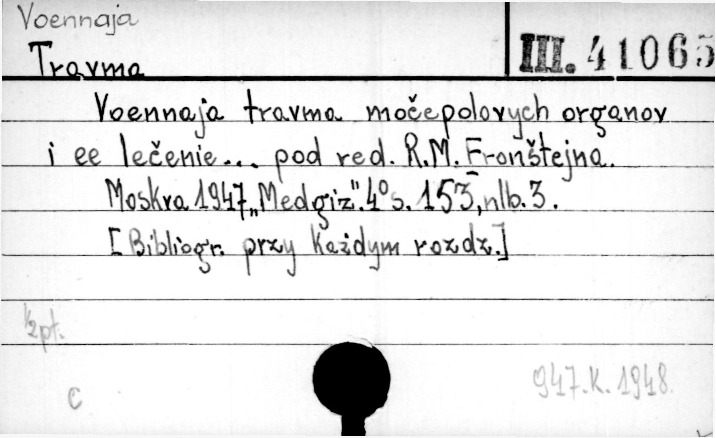 Voennaja
Travma
III. 41065
Voennaja travma močepolovych organov
i ee lečenie... pod red. R.M. Fronštejna.
Moskva 1947 „Medgiz". 4° s. 153, nlb. 3.
[Bibliogr. przy każdym rozdz.]
1/2 pt.
C
947.K.1948.